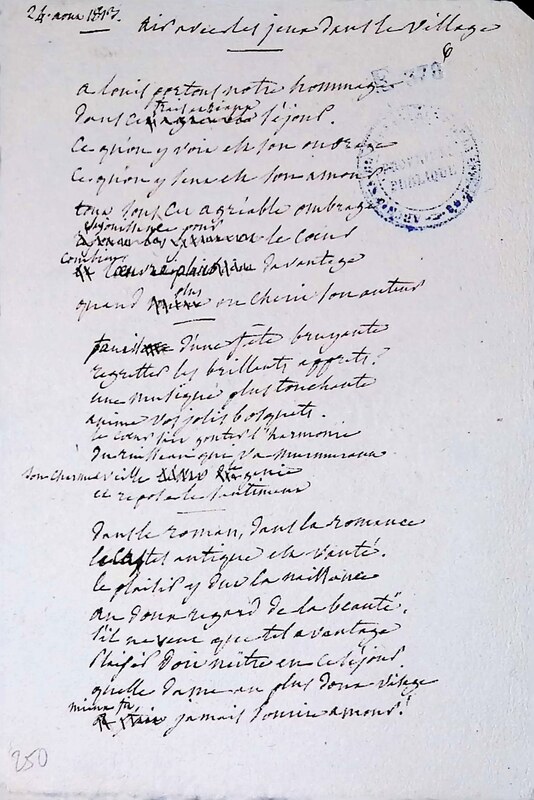 24 aout
Air avec les jeux dans le Village
6
F 376
a louis portons notre hommage
dans ce séjour.
Ce qu'on y voit est son ouvrage
Ce qu'on y sent est son amour
tout sous cet agréable ombrage
pour le Cœur
Combien davantage
quand plus on cherit son auteur
d'une fête bruyante
regretter les brillants apprets?
une musique plus touchante
anime vos jolis bosquets.
le cœur sait gouter l'harmonie
du ruisseau qui va murmurant
Son charme veille génie
et repose le sentiment
Dans le roman, dans la romance
antique est vanté.
le plaisir y dut la naissance
au doux regard de la beauté.
s'il ne veut que tel avantage
Plaisir doit naître en ce séjour.
quelle dame au plus doux visage
mieux jamais sourire amour!
250